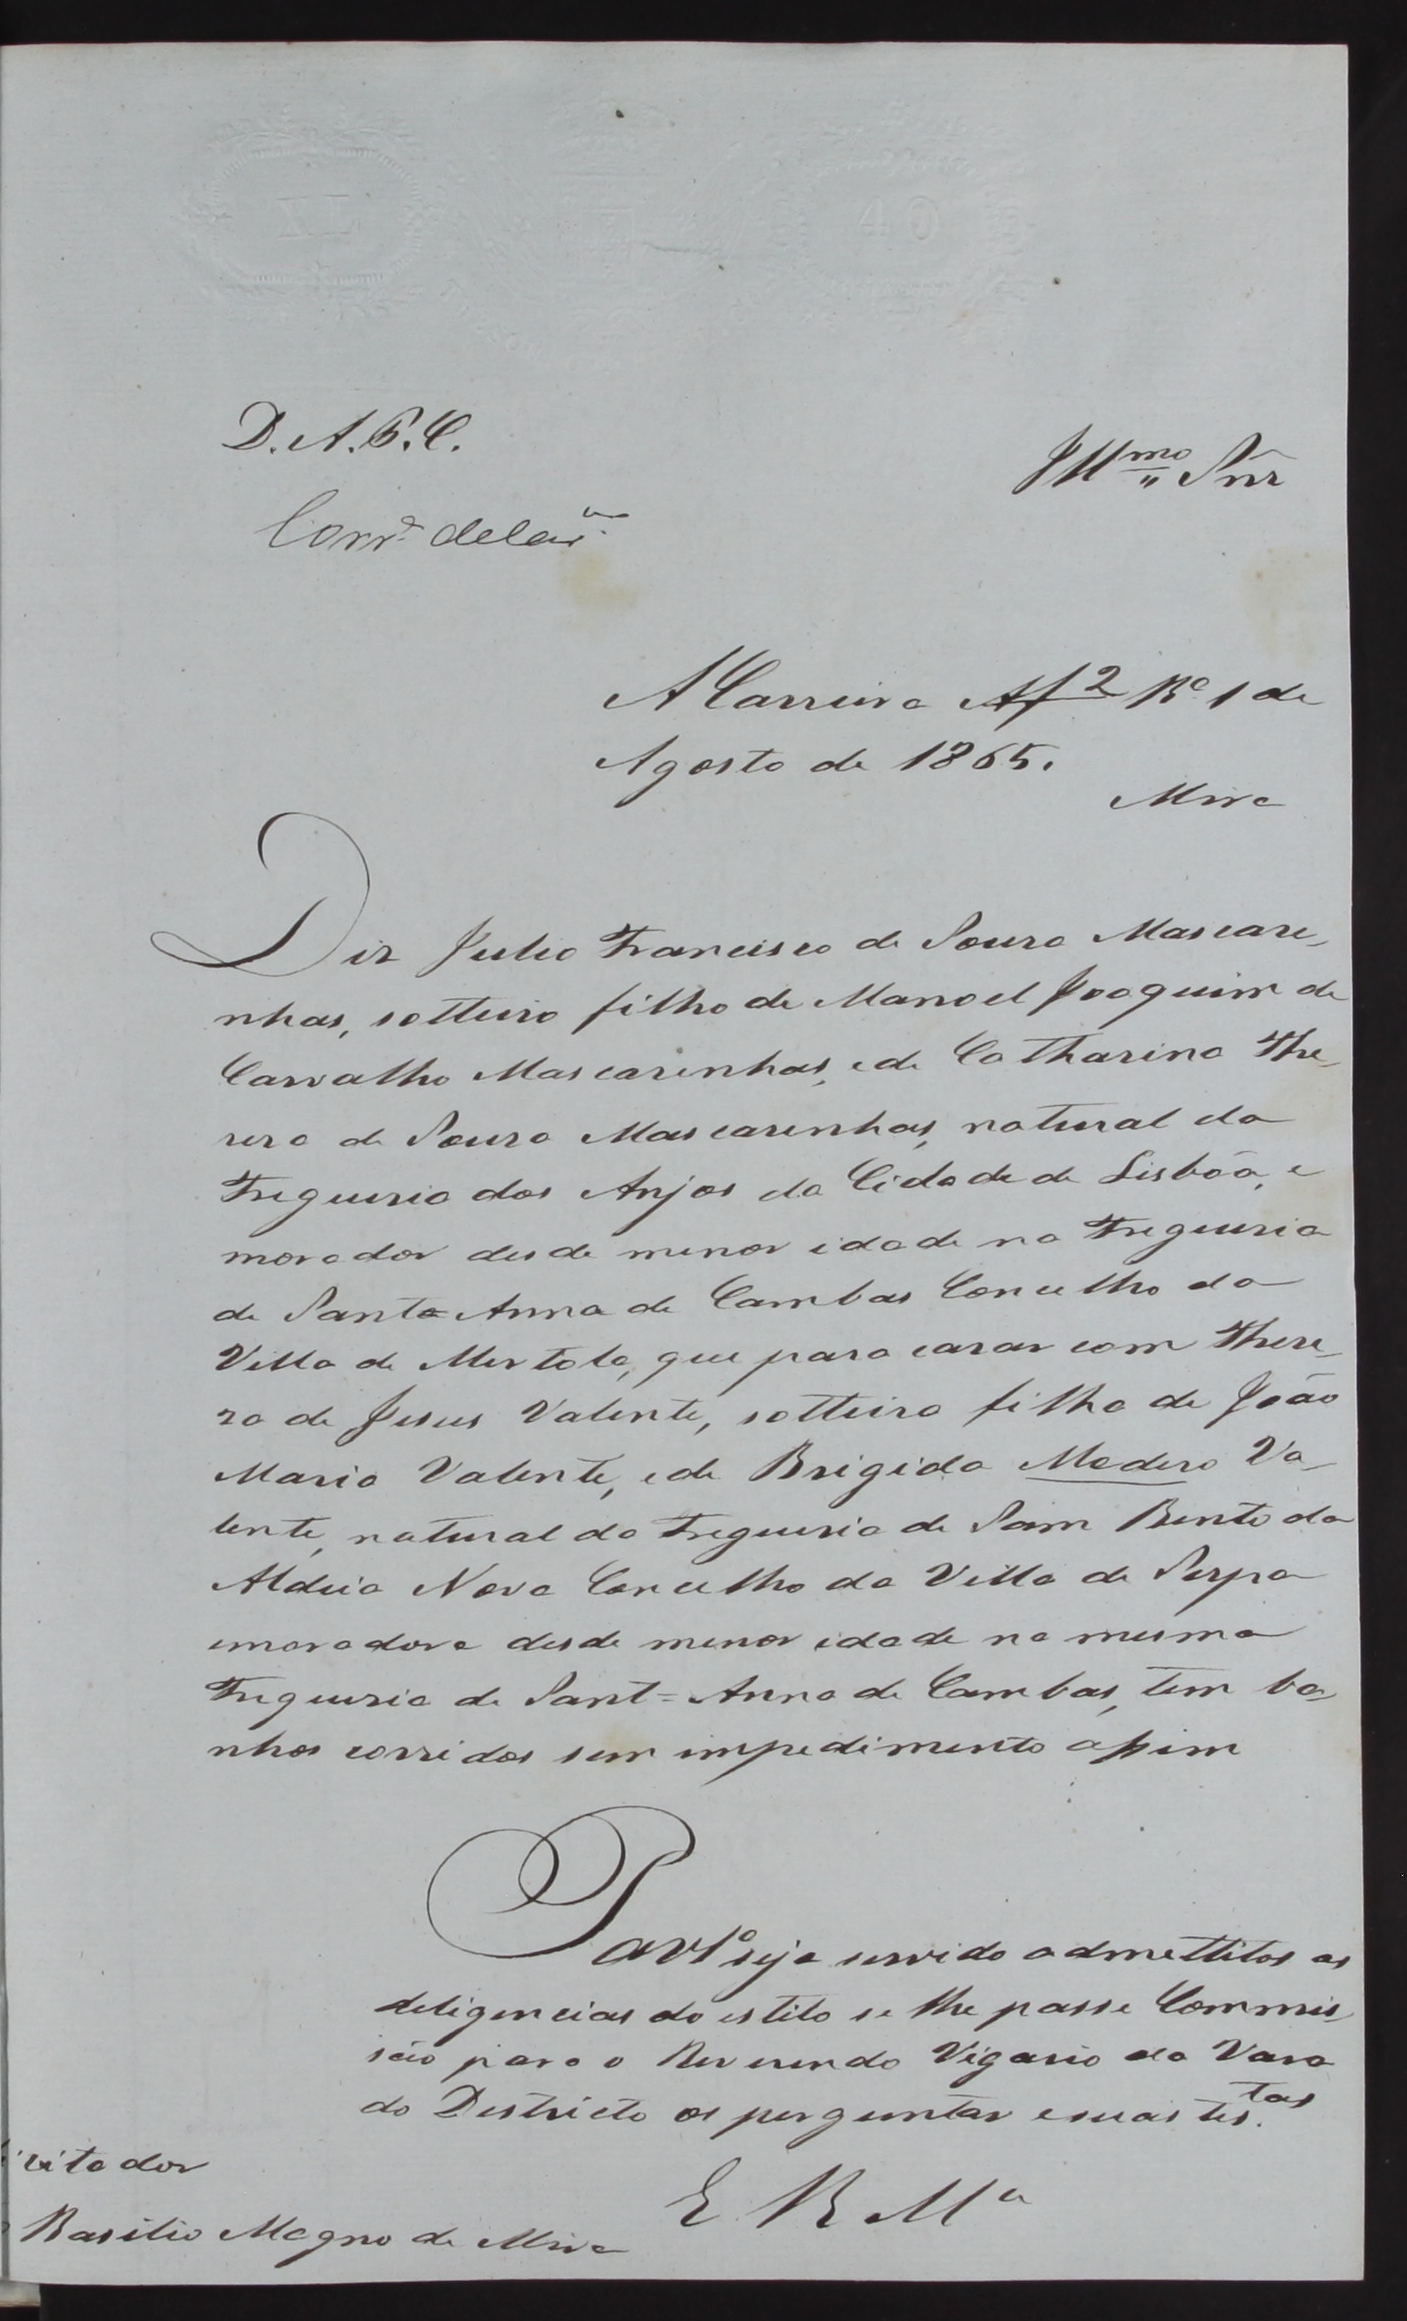 XL
40
D. A. P. C.
Illmo Snr
A Carreira Af 2 Ro 1 de
Agosto de 1865.
Mira
Diz Julio Francisco de Souza Mascare-
nhas, solteiro filho de Manoel Joaquim de
Carvalho Mascarenhas, e de Catharina The-
reza de Souza Mascarenhas, natural da
Freguezia dos Anjos da Cidade de Lisbôa, e
morador desde menor idade na Freguezia
de Santa Anna de Cambas Concelho da
Villa de Mertola, que para cazar com There-
za de Jesus Valente, solteira filha de João
Maria Valente, e de Brigida Madera Va-
lente, natural da Freguezia de Sam Bento da
Aldeia Nova Concelho da Villa de Serpa
e moradora desde menor idade na mesma
Freguezia de Sant=Anna de Cambas, tem ba-
nhos corridos sem impedimento assim
P a V Sa seja servido admettilos as
deligencias do estilo se lhe passe Commis-
são para o Reverendo Vigario da Vara
do Destricto os perguntar e suas tes.tas
E R Mce
icitador
Basilio Magno de Mira